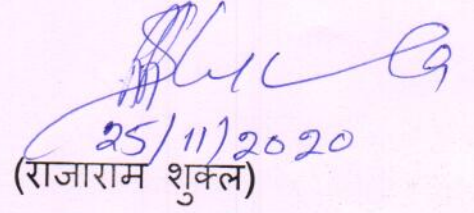 25/11/2020
(राजाराम शुक्ल)